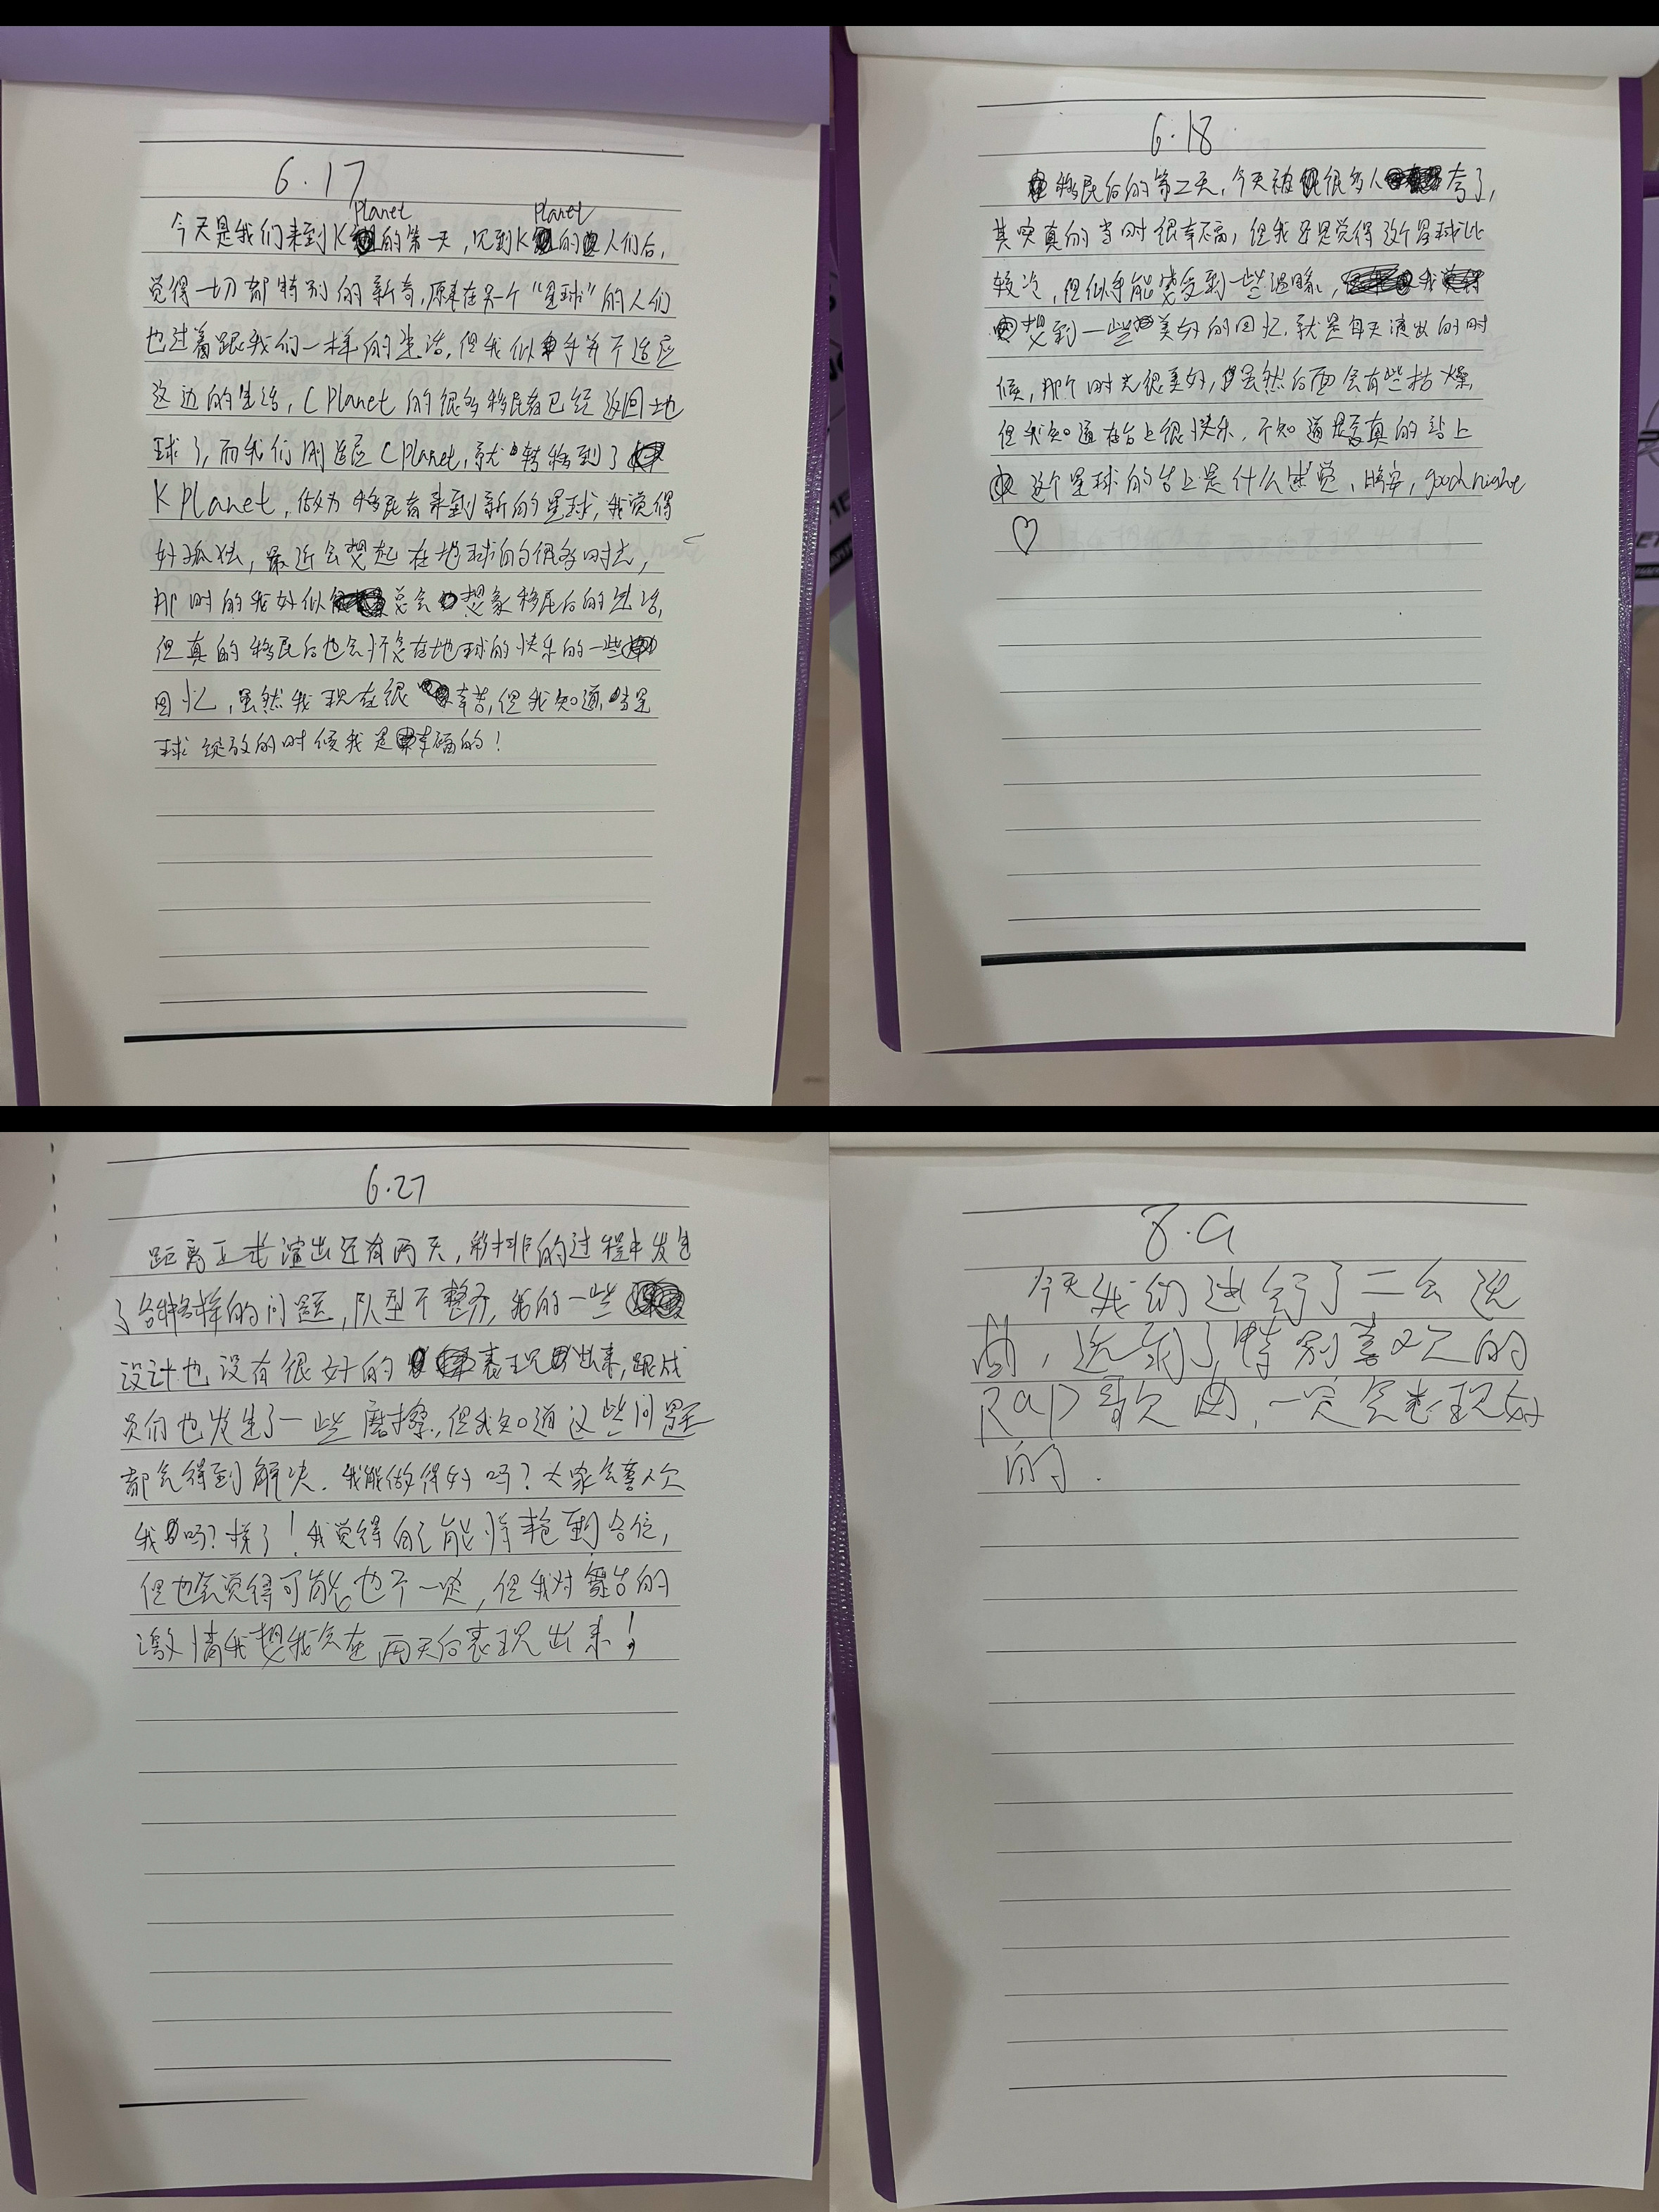 6.17
Planet Planet
今天是我们来到K的第一天,见到K的人们后,
觉得一切都特别的新奇,原来在另一个“星球”的人们
也过着跟我们一样的生活,但我似乎并不适应
这边的生活,C Planet的很多移民者已经返回地
球了,而我们刚适应C Planet,就转移到了
K Planet,做为移民者来到新的星球,我觉得
好孤独,最近会想起在地球的很多时光,
那时的我好似总会想象移民后的生活,
但真的移民后也会怀念在地球的快乐的一些
回忆,虽然我现在很辛苦,但我知道,当星
球绽放的时候我是幸福的!
6.18
移民后的第二天,今天被很多人夸了,
其实真的当时很幸福,但我还是觉得这个星球比
较冷,但似乎能感受到一些温暖,我
想到一些美好的回忆,就是每天演出的时
候,那个时光很美好,虽然后面会有些枯燥,
但我知道在台上很快乐,不知道真的站上
这个星球的台上是什么感觉,晚安,good night
♡
6.27
距离正式演出还有两天,彩排的过程中发生
了各种各样的问题,队型不整齐,我的一些
设计也没有很好的表现出来,跟成
员们也发生了一些磨擦,但我知道这些问题
都会得到解决.我能做得好吗?大家会喜欢
我吗?样了!我觉得自己能将枪到各位,
但也会觉得可能也不一定,但我对舞台的
激情我想我会在两天后表现出来!
8.9
今天我们进行了二公选
曲,选到了特别喜欢的
Rap歌曲,一定会表现好
的.